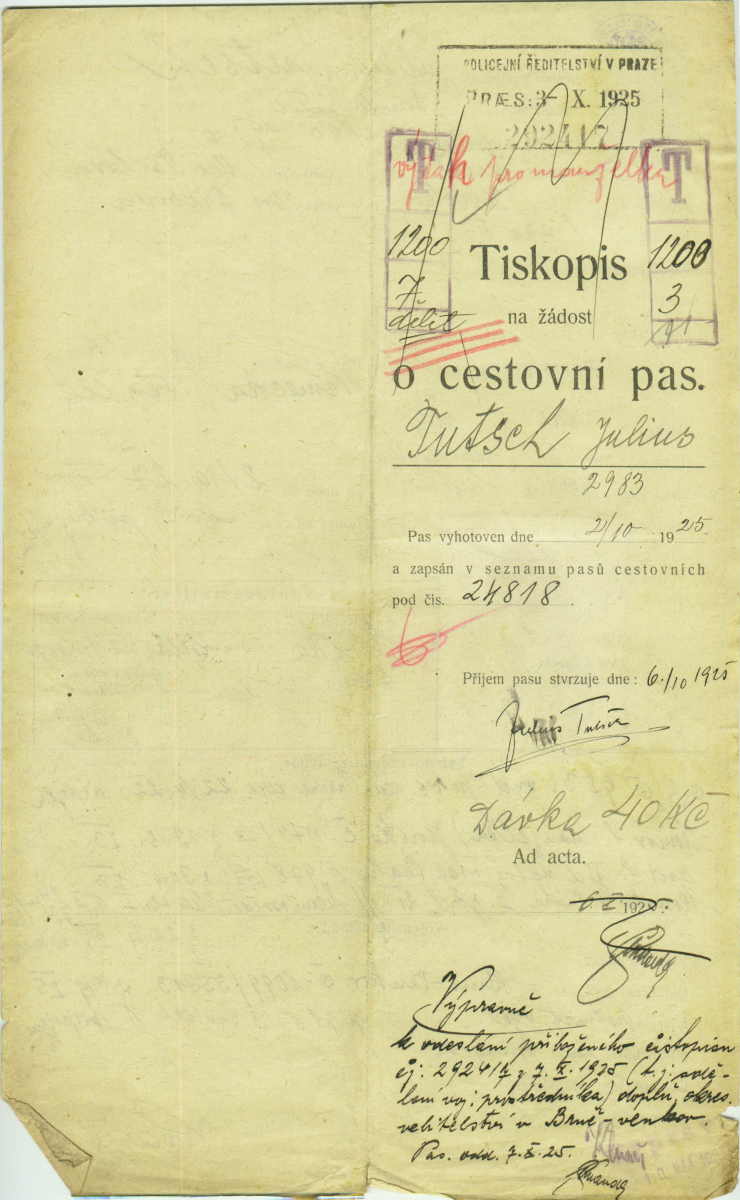 POLICEJNÍ ŘEDITELSTVÍ V PRAZE
PRÆS: 3- X. 1925
292417
T T
pro manželku
1200 1200
7 3
dělit
Tiskopis
na žádost
o cestovní pas.
Tutsch Julius
2983
Pas vyhotoven dne 2/10 1925.
a zapsán v seznamu pasů cestovních
pod čís. 24818.
Příjem pasu stvrzuje dne: 6./10 1925
Julius Tutsch
Dávka 40 Kč
Ad acta.
6. X. 1925.
Výpravně
k odeslání přiloženého čistopisu
čj: 292417 z 7. X. 1925 (t. j. sdě-
lení voj. prostředníka) doplň. okres.
velitelství v Brně-venkov.
Pas. odd. 7. X. 25.